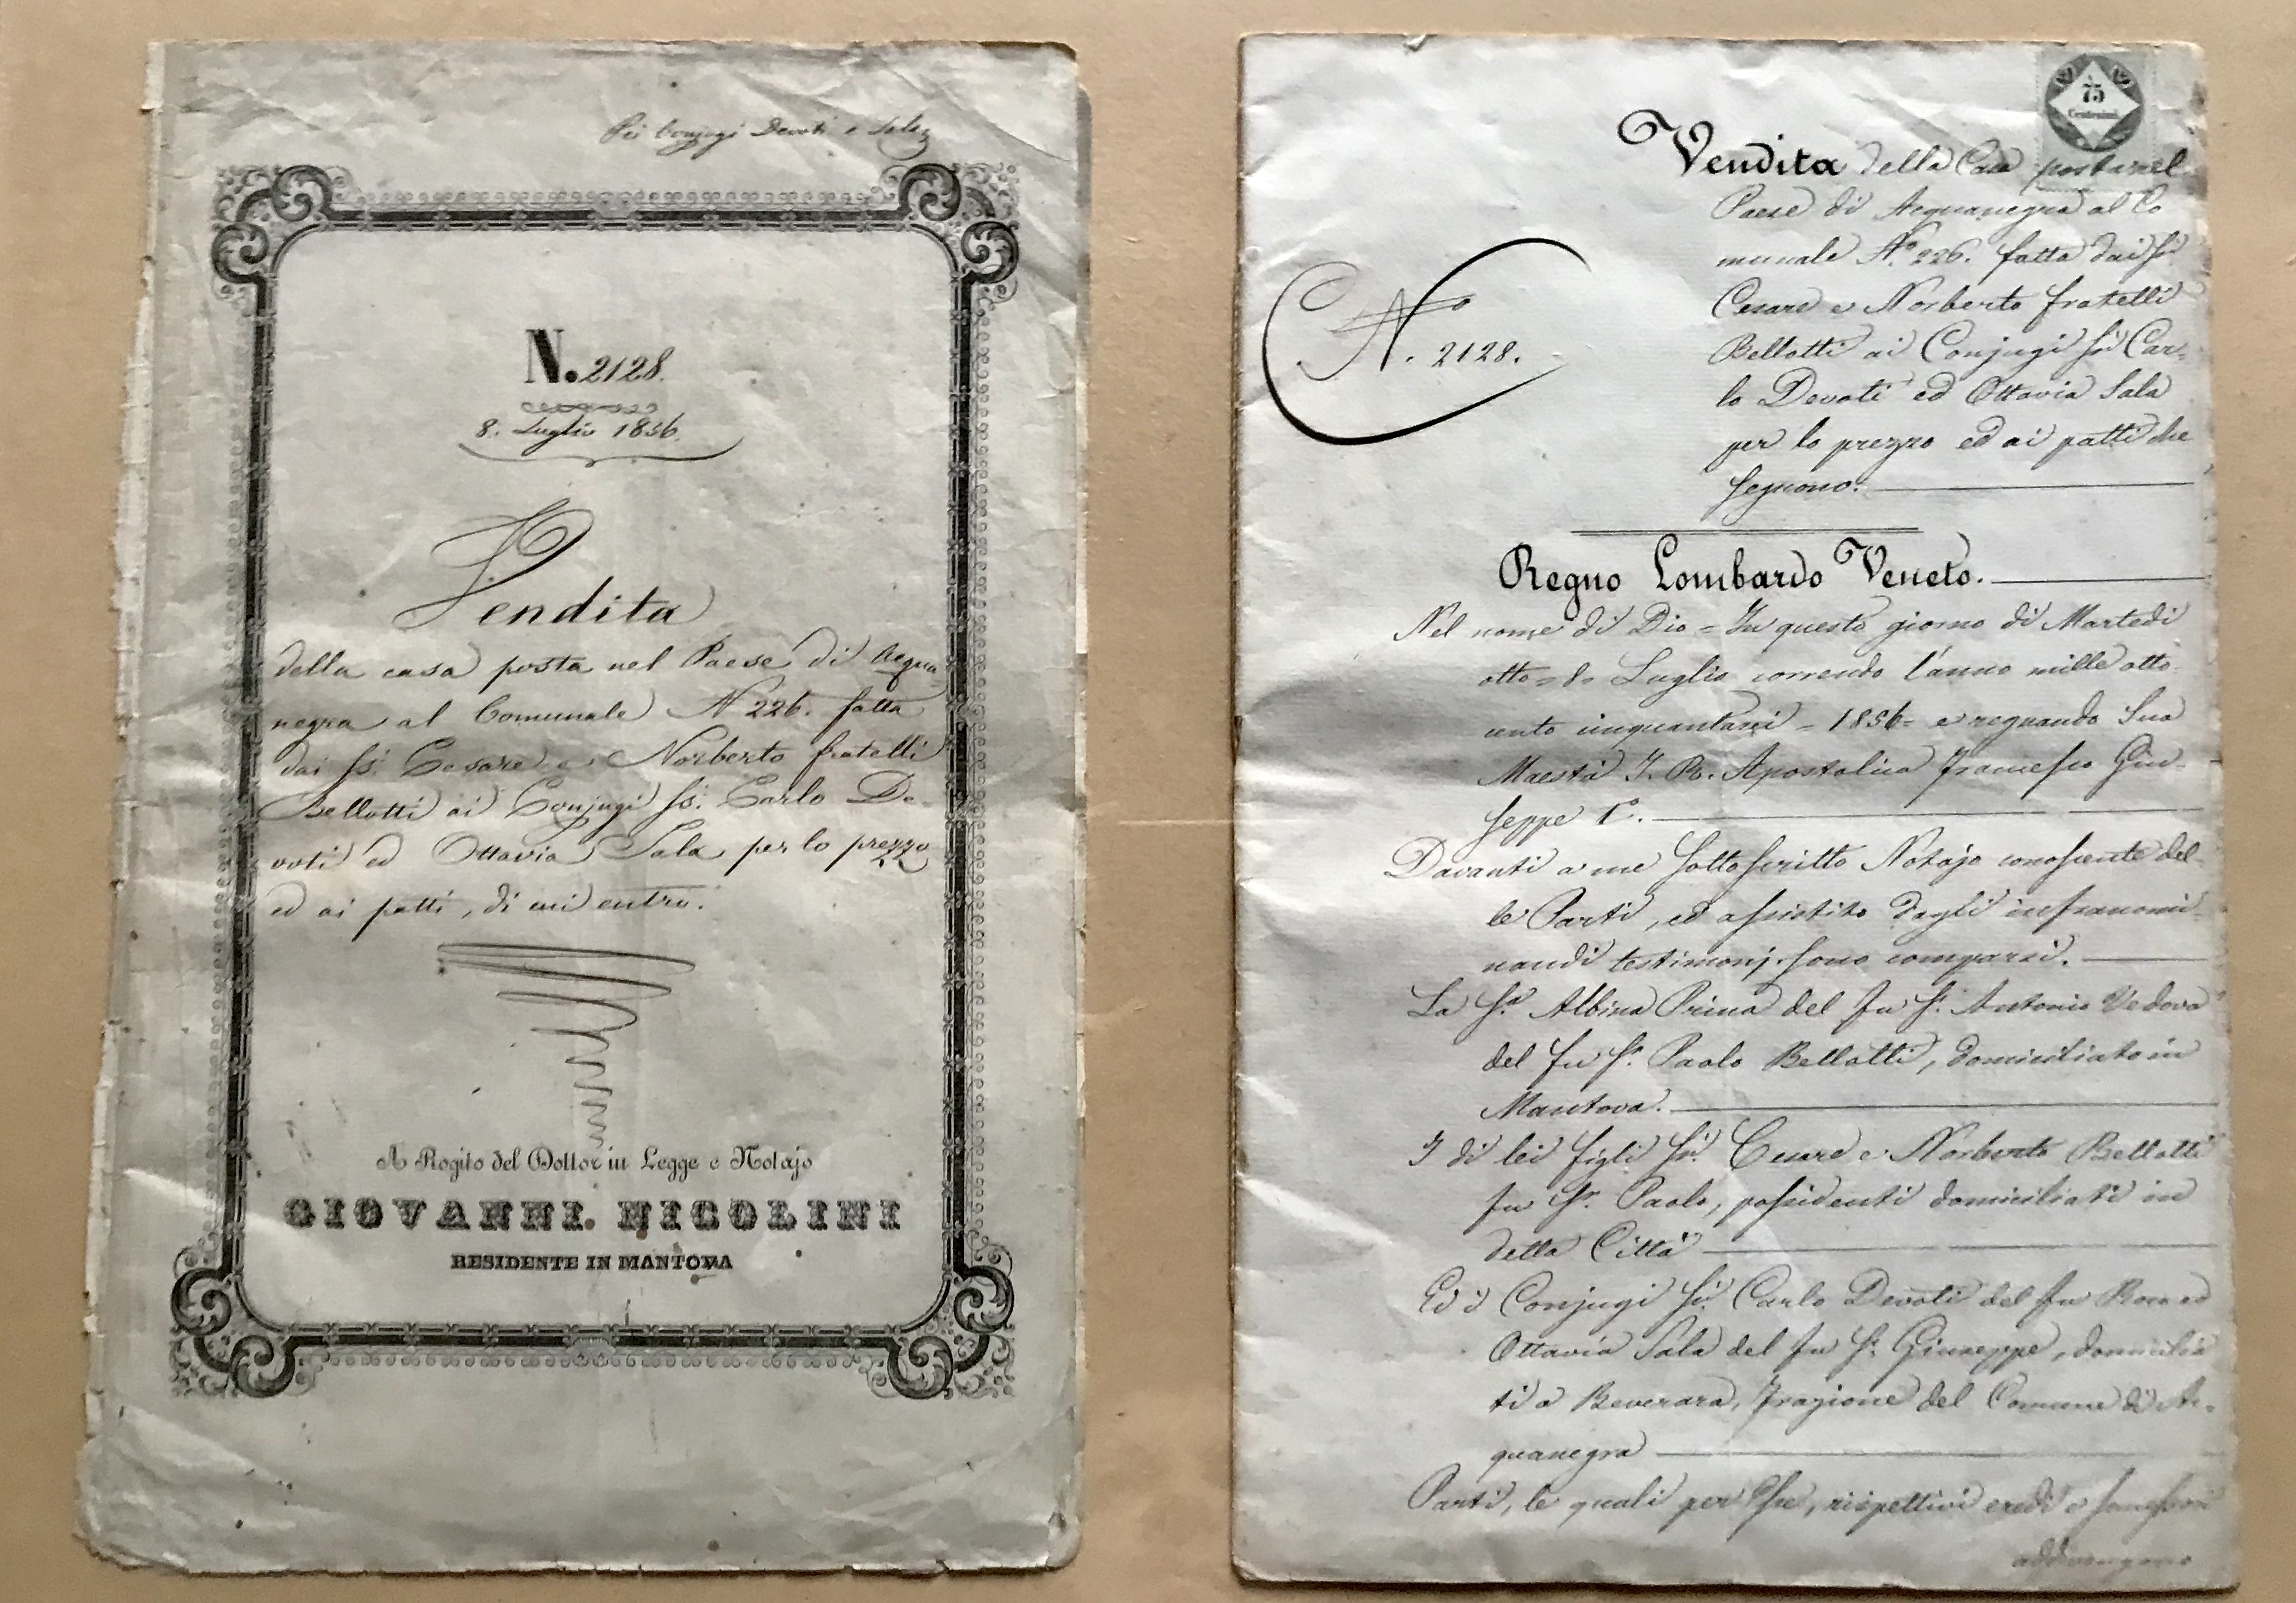 Pei Conjugi Devoti e Sala
N. 2128.
8. Luglio 1856.
Vendita
della casa posta nel Paese di Acqua
negra al Comunale N 226. fatta
dai SS.i Cesare e Norberto fratelli
Bellotti ai Conjugi SS.i Carlo De-
voti ed Ottavia Sala per lo prezzo
ed ai patti, di cui entro.
A Rogito del Dottor in Legge e Notajo
GIOVANNI. NICOLINI
RESIDENTE IN MANTOVA
75
Centesimi
Vendita della Casa posta nel
Paese di Acquanegra al Co
munale N.° 226. fatta dai Sri
Cesare e Norberto fratelli
Bellotti ai Conjugi Sri Car-
lo Devoti ed Ottavia Sala
per lo prezzo ed ai patti che
seguono.
N.° 2128.
Regno Lombardo Veneto.
Nel nome di Dio = In questo giorno di Martedi
otto = 8 = Luglio correndo l'anno mille otto-
cento cinquantasei = 1856 = e regnando Sua
Maestá I. R. Apostolica Francesco Giu-
seppe 1°.
Davanti a me sottoscritto Notajo conoscente del-
le Parti, ed assistito dagli infranomi-
nandi testimonj. sono comparsi.
La S.ra Albina Prina del fu S.r Antonio Vedova
del fu S.r Paolo Bellotti, domiciliata in
Mantova.
I di lei figli Sri Cesare e Norberto Bellotti
fu S.r Paolo, possidenti domiciliati in
detta Cittá
Ed i Conjugi Sri Carlo Devoti del fu ed
Ottavia Sala del fu S.r Giuseppe, domicilia
ti a Beverara, frazione del Comune di Ac-
quanegra
Parti, le quali per se, rispettivi eredi e successori
addivengono